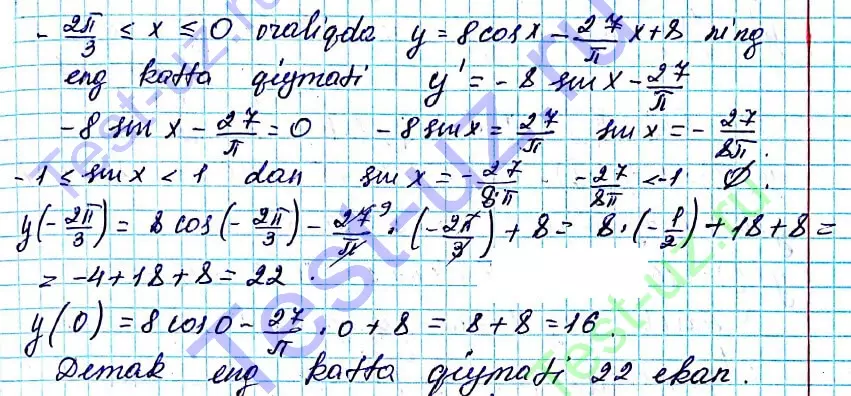 - 2π/3 ≤ x ≤ 0 oraliqda y = 8cosx - 27/π x + 8 ning
eng katta qiymati y' = - 8 sinx - 27/π
-8 sin x - 27/π = 0 -8 sinx = 27/π sin x = - 27/8π .
-1 ≤ sin x < 1 dan sin x = - 27/8π - 27/8π < -1 ∅.
y(-2π/3) = 8 cos(-2π/3) - 27⁹/π · (-2π/3) + 8 = 8·(-1/2) + 18 + 8 =
= -4+18+8 = 22 .
y(0) = 8 cos0 - 27/π · 0 + 8 = 8+8 = 16 .
Demak eng katta qiymati 22 ekan.
Test-uz.ru
Test-uz.ru
Test-uz.ru